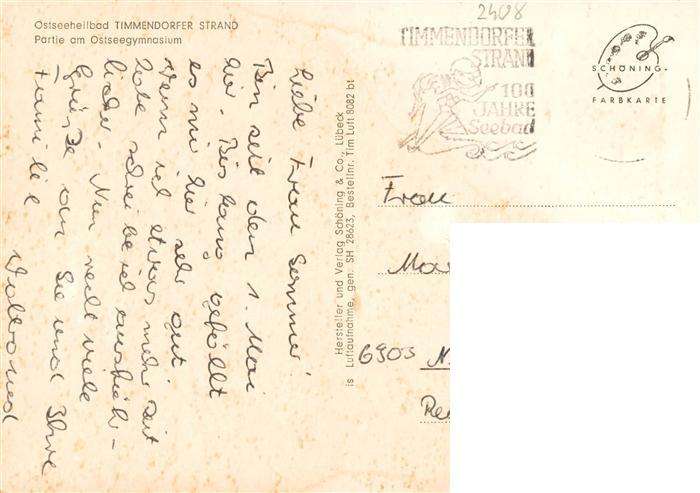 Ostseeheilbad TIMMENDORFER STRAND
Partie am Ostseegymnasium
Liebe Frau Sommer!
Bin seit den 1. Mai
hier. Bis lang gefällt
es mir hier sehr gut
Wenn ich etwas mehr Zeit
habe schreibe ich ausführ-
licher. Nun recht viele
Grüße an Sie und Ihre
Familie
Hersteller und Verlag Schöning & Co., Lübeck
is Luftaufnahme, gen. SH 28623, Bestellnr. Tim Luft 8082 bt
2408
TIMMENDORFER
STRAND
100
JAHRE
Seebad
SCHÖNING-
FARBKARTE
Frau
6903